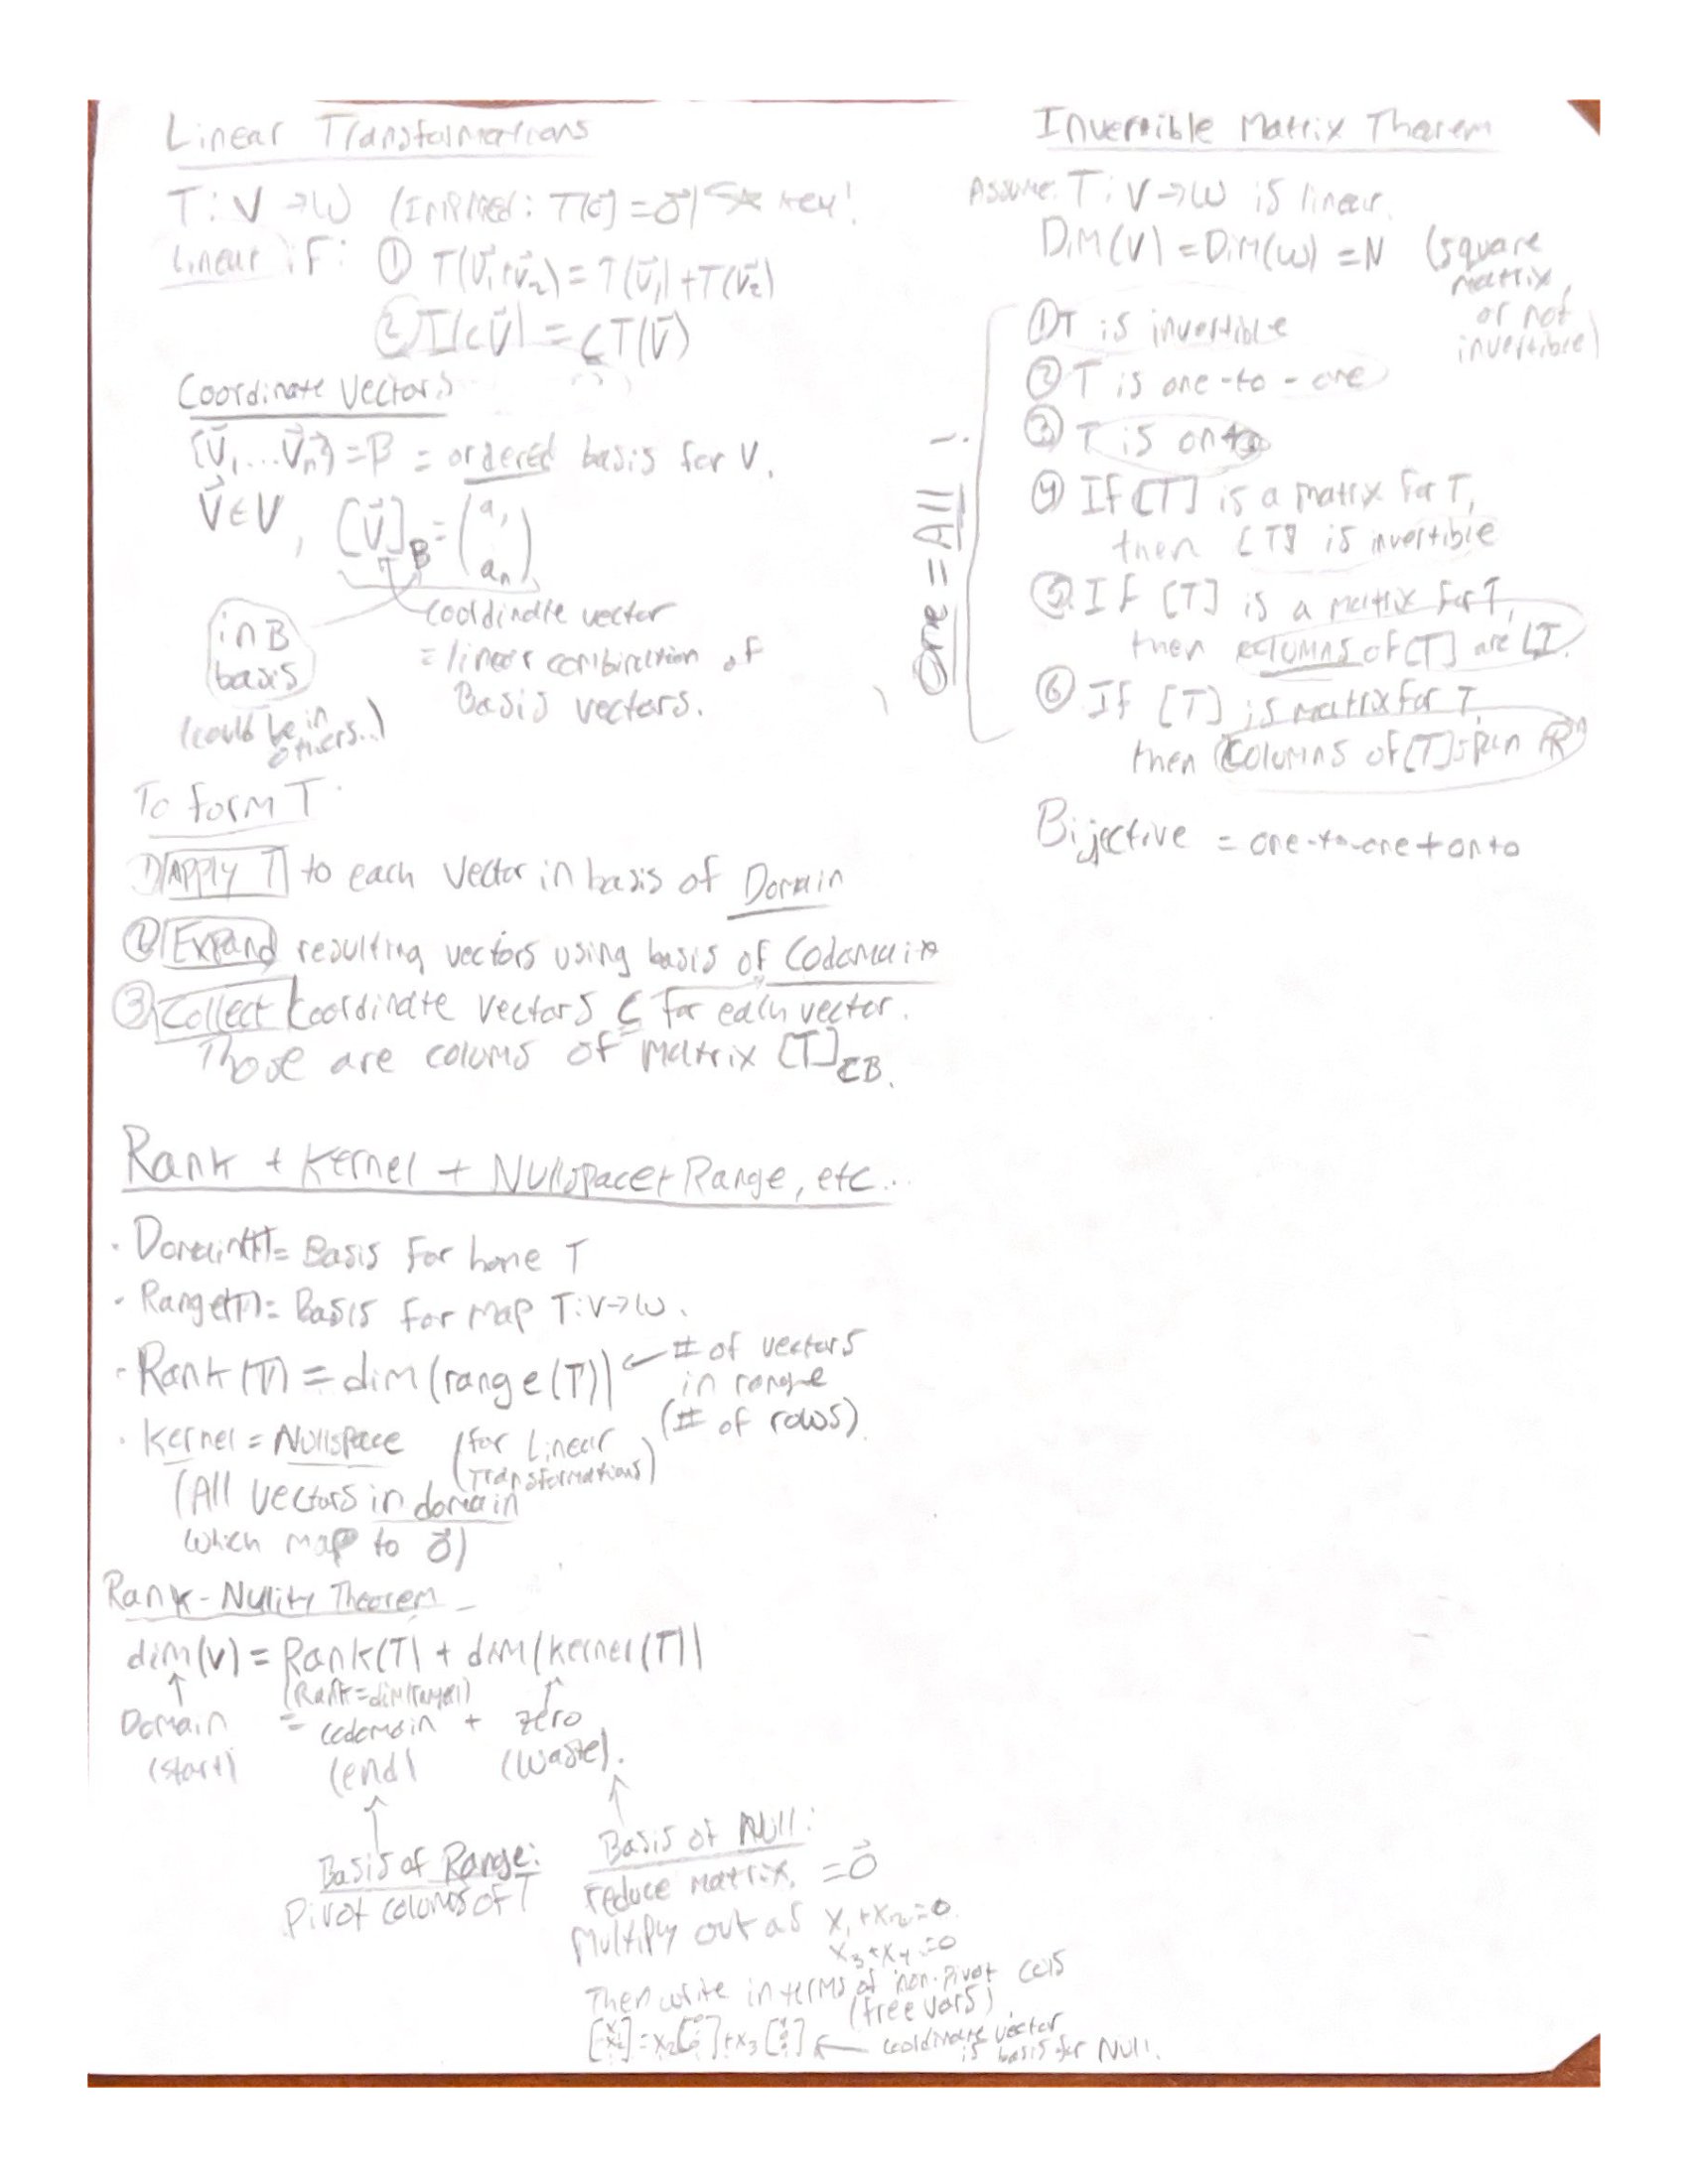 Linear Transformations
T: V → W (Implied: T(0⃗) = 0⃗) ← ☆ key!
Linear if: ① T(v⃗₁+v⃗₂) = T(v⃗₁) + T(v⃗₂)
② T(cv⃗) = cT(v⃗)
Coordinate Vectors
{v⃗₁...v⃗ₙ} = β = ordered basis for V.
v⃗ ∈ V, [v⃗]_B = (a₁ aₙ)
in B
basis
(could be in
others..)
coordinate vector
= linear combination of
Basis vectors.
To form T
① Apply T to each vector in basis of Domain
② Expand resulting vectors using basis of Codomain
③ Collect coordinate vectors C for each vector.
Those are colums of matrix [T]_CB.
Rank + Kernel + Nullspace + Range, etc...
· Domain(T) = Basis for home T
· Range(T) = Basis for map T: V→W.
· Rank(T) = dim(range(T)) ← # of vectors
in range
(# of rows)
· Kernel = Nullspace (for Linear
Transformations)
(All vectors in domain
which map to 0⃗)
Rank-Nullity Theorem
dim(V) = Rank(T) + dim(kernel(T))
(Rank = dim(range))
Domain = codomain + zero
(start) (end) (waste).
Basis of Range:
Pivot colums of T
Basis of Null:
reduce matrix, = 0⃗
Multiply out as x₁+x₂=0
x₃+x₄=0
Then write in terms of non-pivot cols
(free vars)
coordinate vector
is basis for Null.
Invertible Matrix Thorem
Assume: T: V→W is linear.
Dim(V) = Dim(W) = N (square
matrix,
or not
invertible)
One = All!
① T is invertible
② T is one-to-one
③ T is onto
④ If [T] is a matrix for T,
then [T] is invertible
⑤ If [T] is a matrix for T,
then columns of [T] are LI.
⑥ If [T] is matrix for T,
then columns of [T] span ℝⁿ
Bijective = one-to-one + onto